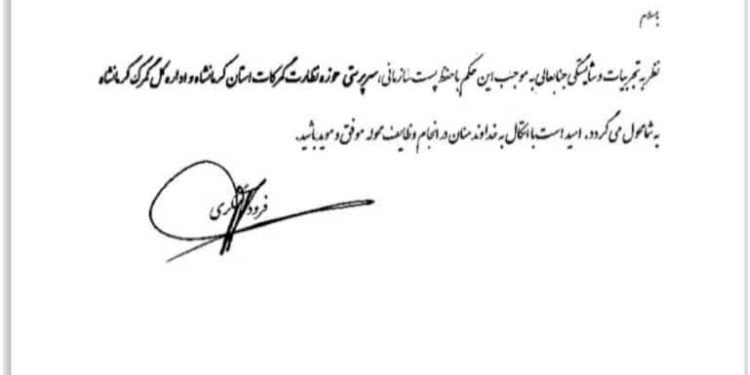 باسلام
نظر به تجربیات و شایستگی جنابعالی به موجب این حکم با حفظ پست سازمانی، سرپرستی حوزه نظارت گمرکات استان کرمانشاه و اداره کل گمرک کرمانشاه
به شما محول می گردد. امید است با اتکال به خداوند منان در انجام وظایف محوله موفق و موید باشید.
فرود